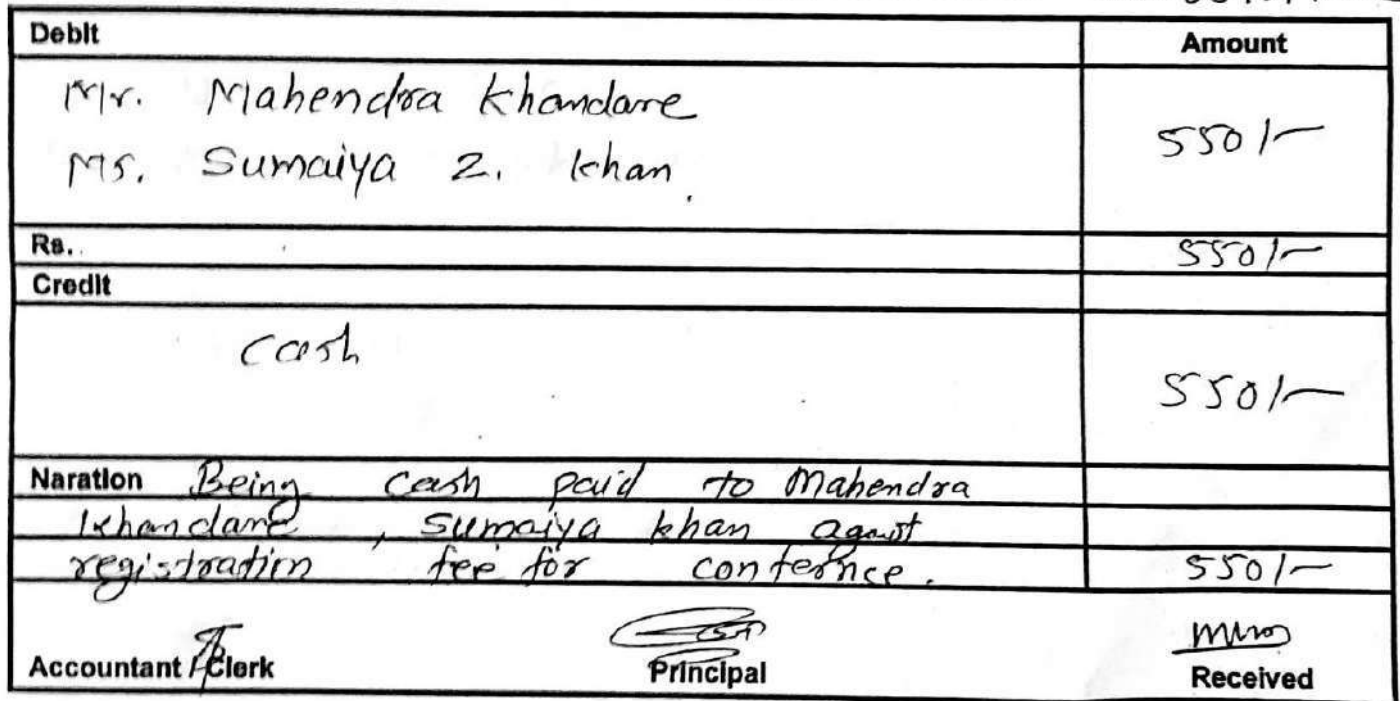 Debit Amount
Mr. Mahendra Khandare
550/-
Ms. Sumaiya Z. Khan.
Rs. 550/-
Credit
Cash
550/-
Naration Being Cash paid to Mahendra
Khandare, Sumaiya khan against
registration fee for conference. 550/-
Accountant / Clerk Principal Received